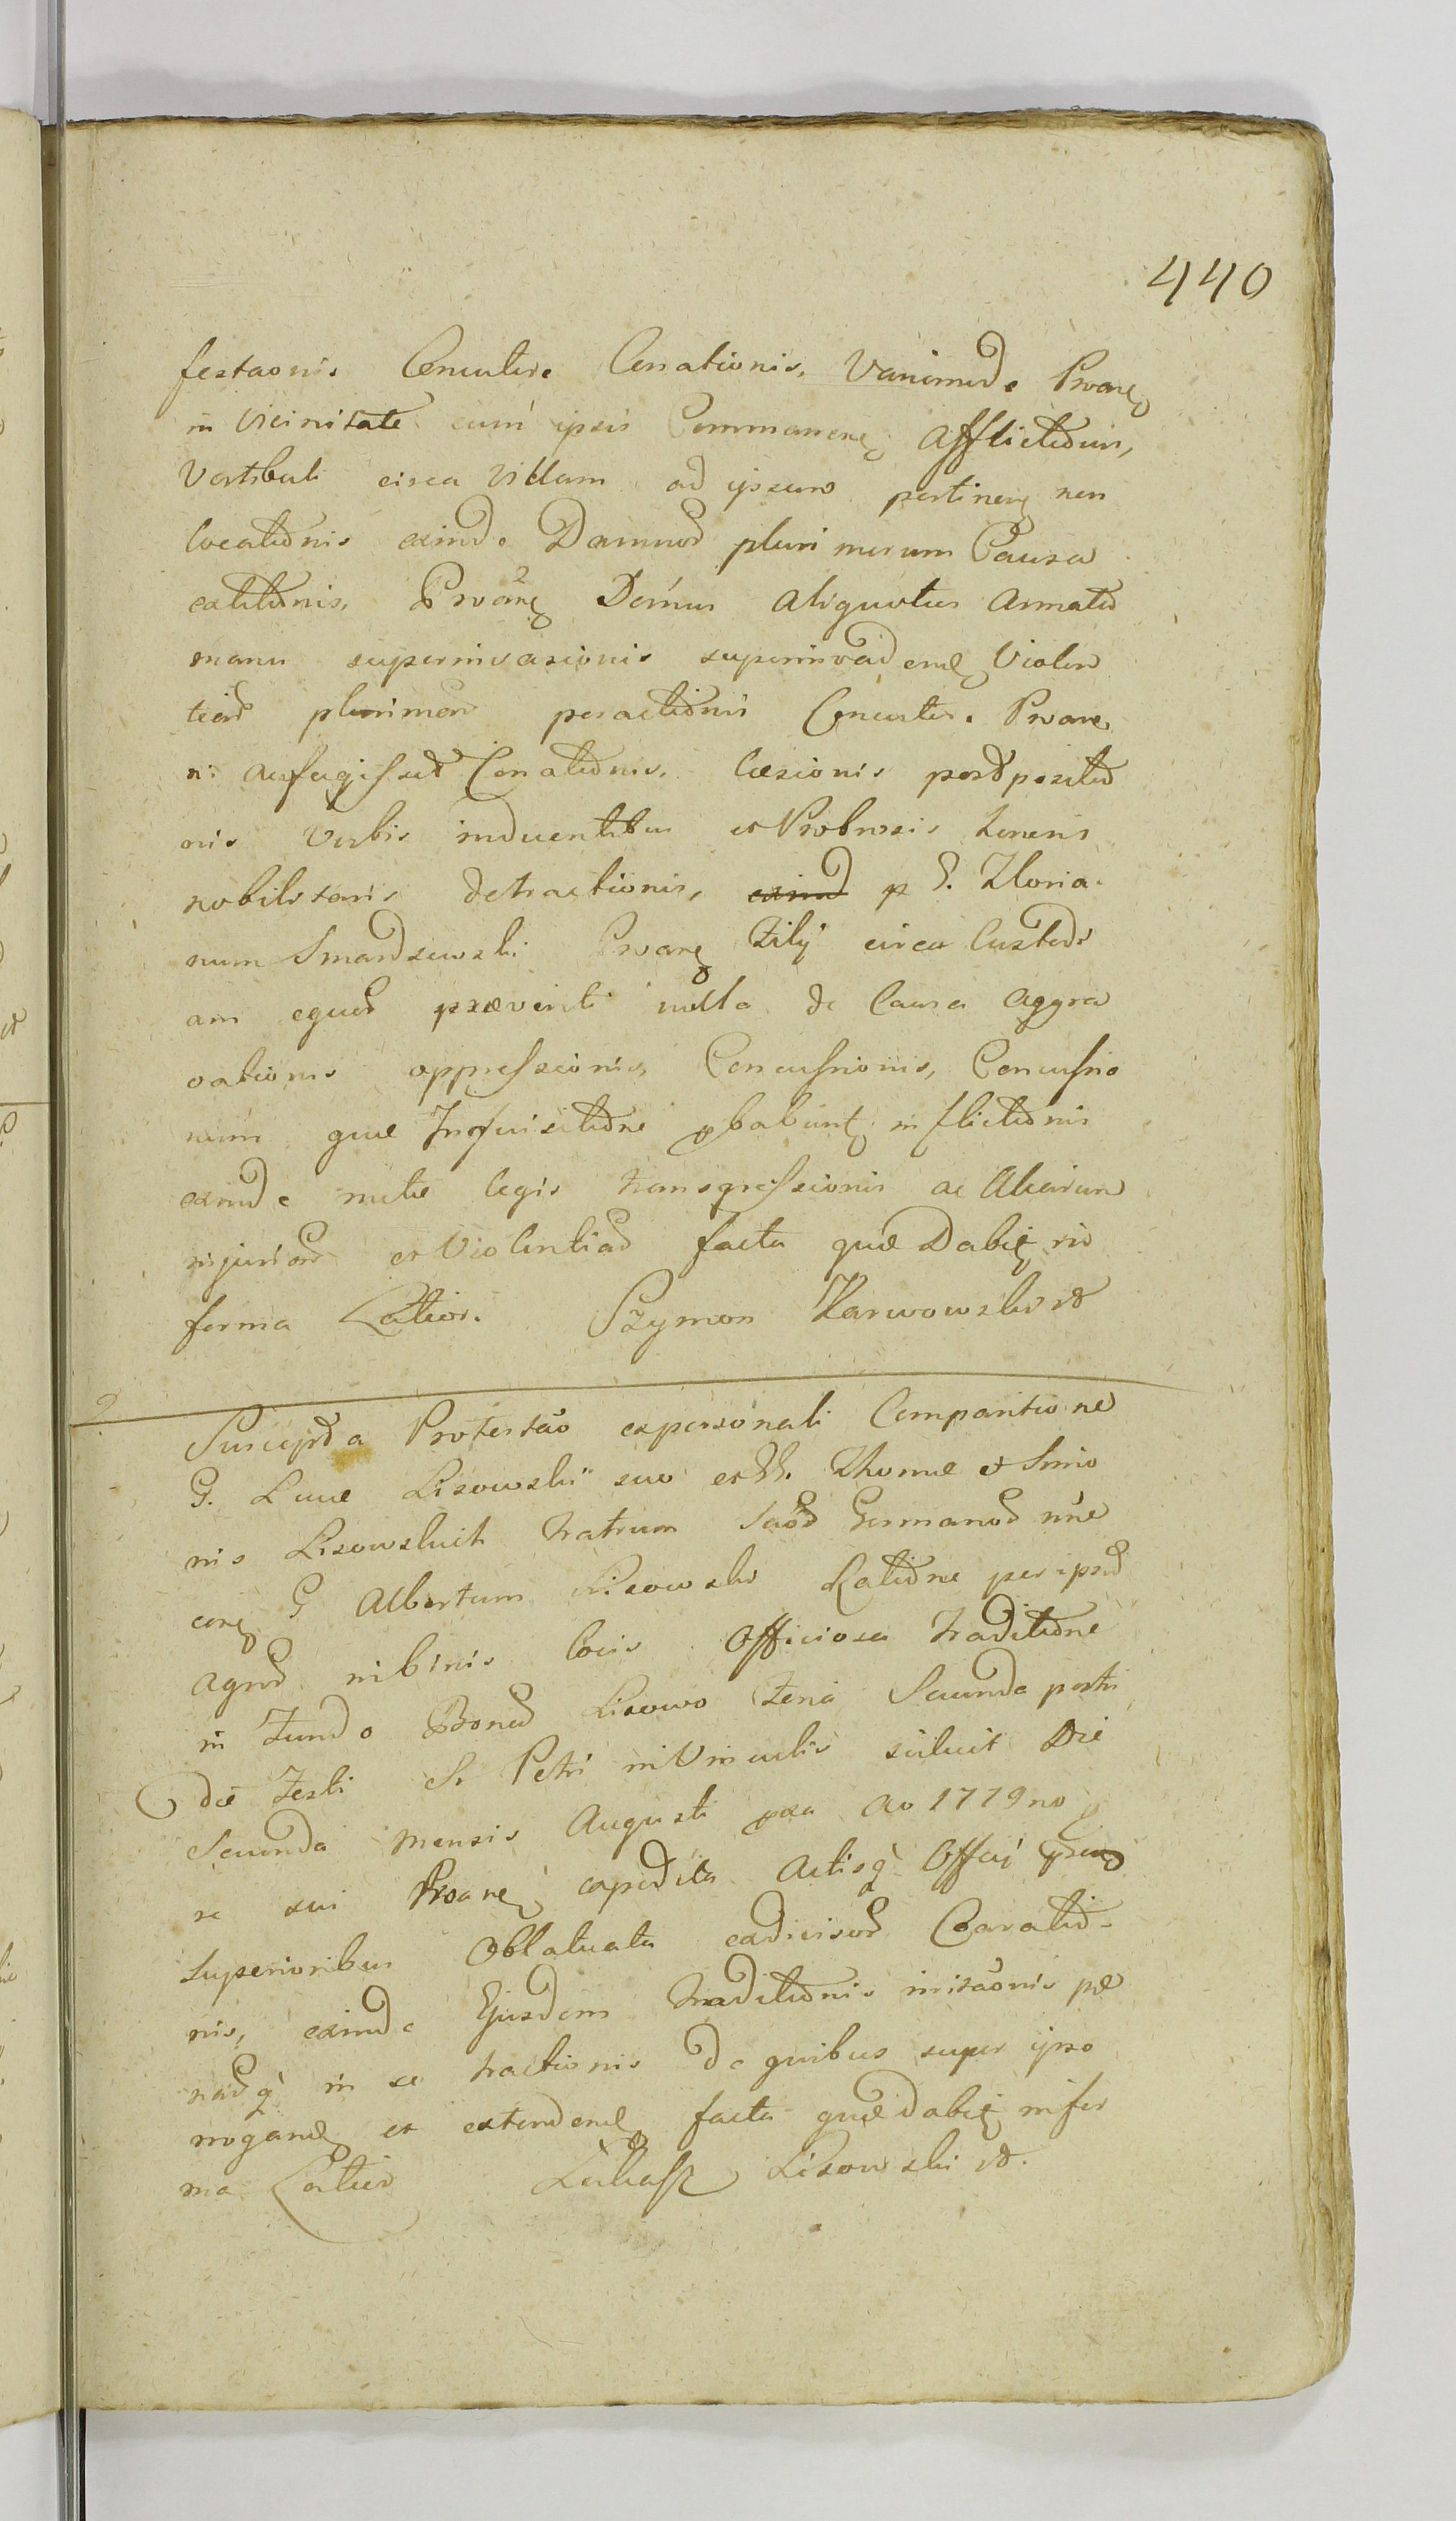 440
festaonis Concutere Conationis, Vanimode Proanę
in Vicinitate cum ipsis Commanenę Afflictionis,
Vestibuli circa Villam ad ipsum pertinenę non
locationis exinde Damnor plurimorum Causa
extitionis, Proanę Domus aliquoties Armata
manu superinvasionis superinvadendę Violen
tiar plurimar peractionis Concutere Proanę
ni aufugisset Conationis, laesionis postposita
nis Verbis inducentibus et Probrosis honoris
nobilitaris detractionis, exind p G. Floria
num Smardzewski Proanę Filij circa Custodi
am equor praeventi nulla de Causa Aggra
vationis oppressionis, Concussionis, Concussio
num quae Inquisitione pbabuntę inflictionis
exinde mete legis transgressionis ac Aliarum
injuriar et Violentiar facta quae Dabię in
forma Latior. Szymon Karwowski
Suscepta Protestao ex personali Comparitione
G. Lucae Lisowskii suo et GG. Thomae et Simo
nis Lisowskich Fratrum Suor Germanor nne
corę G Albertum Lisowski Ratione per ipsum
agror in binis locis Officiosa traditione
in Fundo Bonor Lisowo Feria Secunda post
die Festi S. Petri in Vinculis scilicet Die
Secunda mensis Augusti pxa Ao 1779no
re sui Proanę expedita Actisq Officij prnę
superioribus Oblatuata exdivisor Coaratio-
nis, exinde Ejusdem traditionis irritaonis pae
narq in se tractionis de quibus super ipso
irrogandę et extendendę facta quae dabię in for
ma Latior Łukasz Lisowski